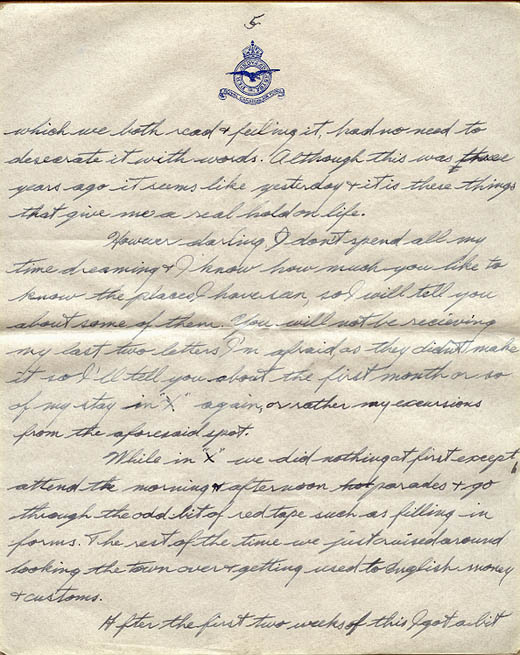 5
ROYAL CANADIAN AIR FORCE
which we both read + feeling it, had no need to
desecrate it with words. Although this was three
years ago it seems like yesterday + it is these things
that give me a real hold on life.
However darling, I don't spend all my
time dreaming + I know how much you like to
know the places I have san so I will tell you
about some of them. You will not be recieving
my last two letters I'm afraid as they didn't make
it so I'll tell you about the first month or so
of my stay in "X" again, or rather my excursions
from the aforesaid spot.
While in "X" we did nothing at first except
attend the morning + afternoon parades + go
through the odd bit of red tape such as filling in
forms. The rest of the time we just cruised around
looking the town over + getting used to English money
+ customs.
After the first two weeks of this I got a bit